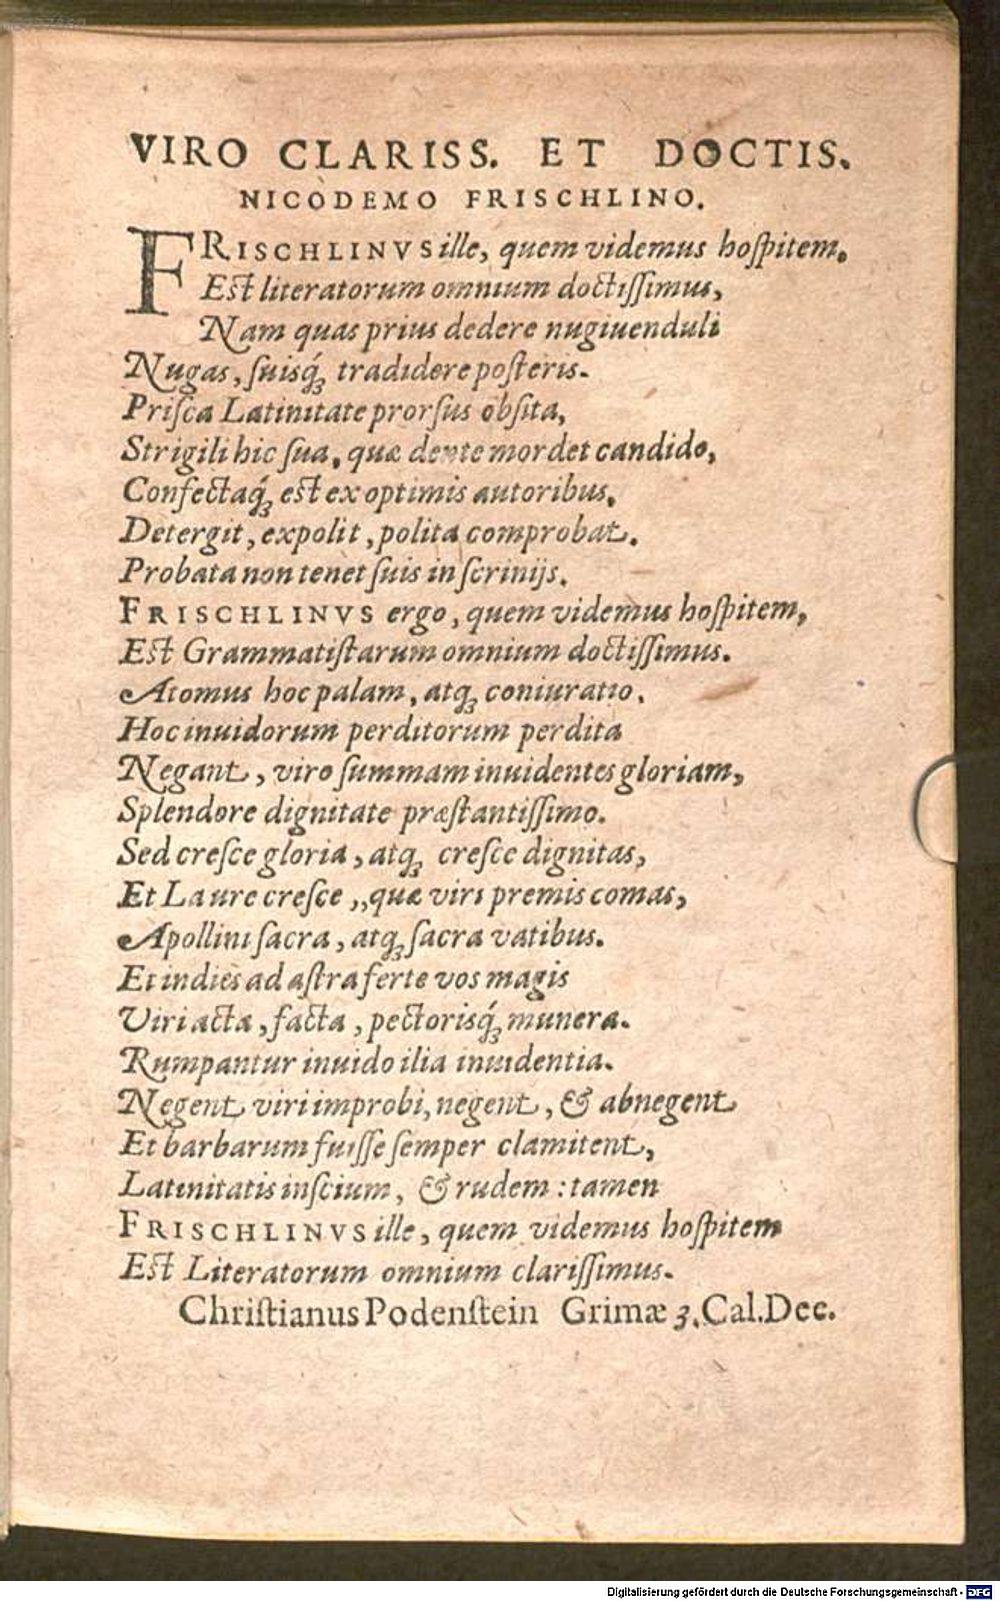 VIRO CLARISS. ET DOCTIS.
NICODEMO FRISCHLINO.
FRISCHLINVS ille, quem videmus hoſpitem,
Eſt literatorum omnium doctiſſimus,
Nam quas prius dedere nugiuenduli
Nugas, ſuisq́ꝫ tradidere poſteris.
Priſca Latinitate prorſus obſita,
Strigili hic ſua, quæ dente mordet candido,
Confectaq́ꝫ eſt ex optimis autoribus,
Detergit, expolit, polita comprobat.
Probata non tenet ſuis in ſcrinijs.
FRISCHLINVS ergo, quem videmus hoſpitem,
Eſt Grammatiſtarum omnium doctiſſimus.
Atomus hoc palam, atqꝫ coniuratio,
Hoc inuidorum perditorum perdita
Negant, viro ſummam inuidentes gloriam,
Splendore dignitate præſtantiſſimo.
Sed creſce gloria, atqꝫ creſce dignitas,
Et Laure creſce, quæ viri premis comas,
Apollini ſacra, atqꝫ ſacra vatibus.
Et indies ad aſtra ferte vos magis
Viri acta, facta, pectorisq́ꝫ munera.
Rumpantur inuido ilia inuidentia.
Negent viri improbi, negent, & abnegent
Et barbarum fuiſſe ſemper clamitent,
Latinitatis inſcium, & rudem: tamen
FRISCHLINVS ille, quem videmus hoſpitem
Eſt Literatorum omnium clariſſimus.
Chriſtianus Podenſtein Grimæ 3. Cal. Dec.
Digitalisierung gefördert durch die Deutsche Forschungsgemeinschaft - DFG